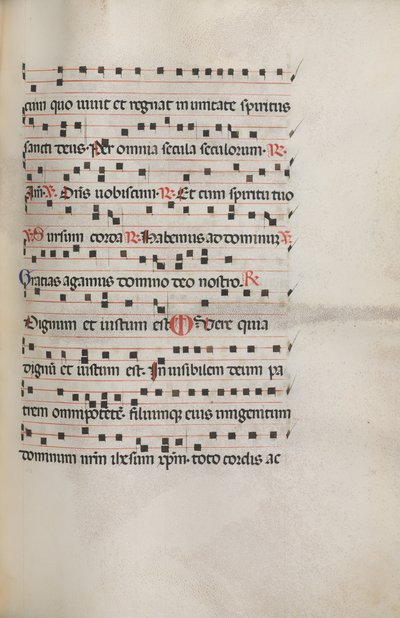 cum quo uiuit et regnat in unitate spiritus
sancti deus. Per omnia secula seculorum. R.
Am̃. V. Dñs uobiscum. R. Et cum spiritu tuo
V. Sursum corda R. Habemus ad dominum V.
Gratias agamus domino deo nostro. R.
Dignum et iustum est. Uere quia
dignũ et iustum est. Inuisibilem deum pa
trem omnipotētē. filiumque eius unigenitum
dominum nr̃m ihesum xp̃m. toto cordis ac